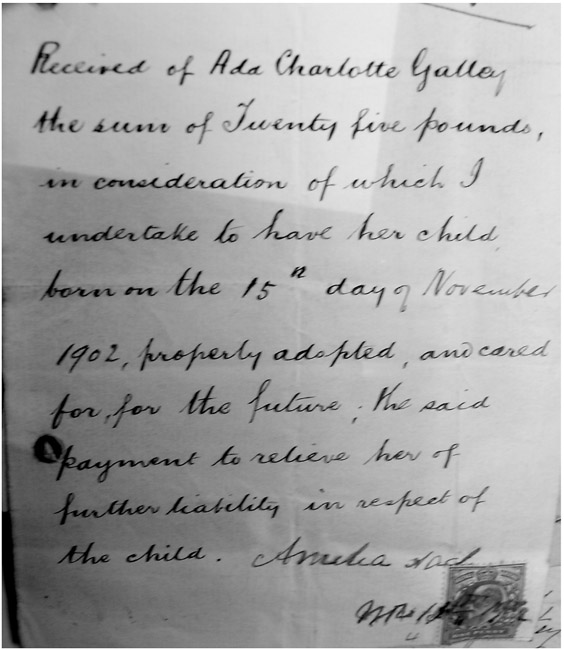 Received of Ada Charlotte Galley
the sum of Twenty five pounds,
in consideration of which I
undertake to have her child,
born on the 15th day of November
1902, properly adopted, and cared
for, for the future; the said
payment to relieve her of
further liability in respect of
the child. Amelia